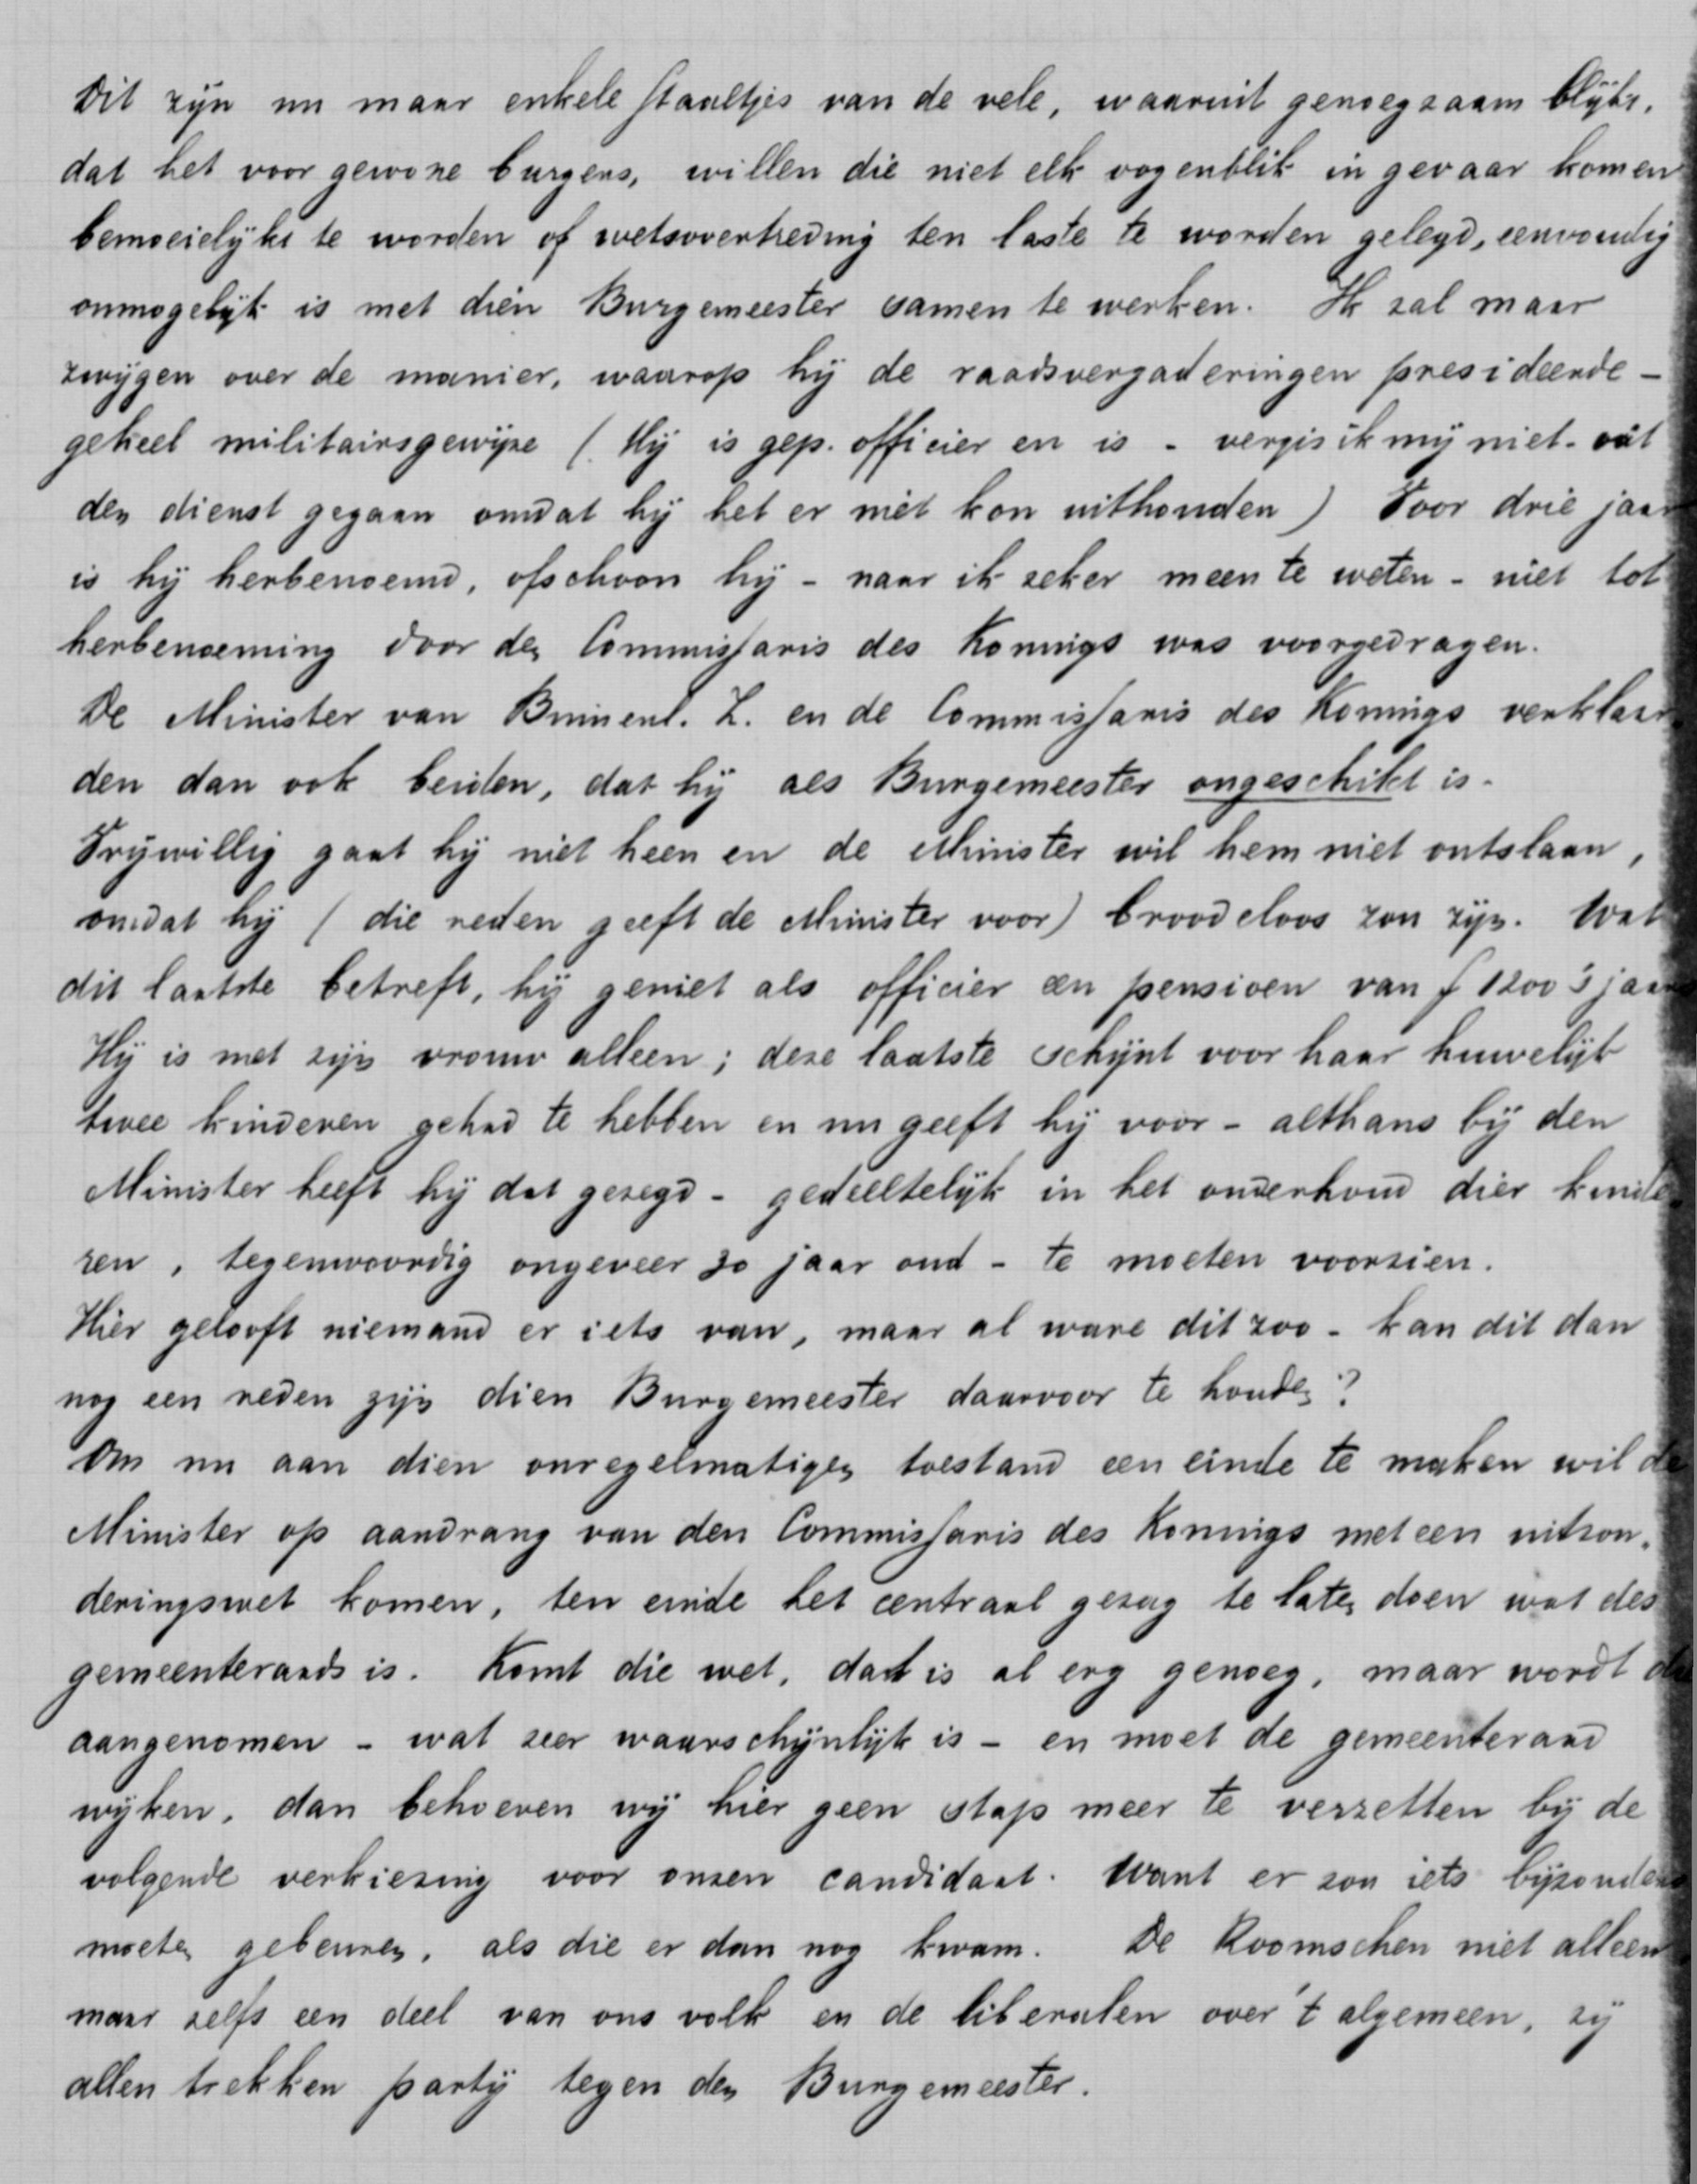 Dit zijn nu maar enkele staaltjes van de vele, waaruit genoegzaam blijkt,
dat het voor gewone burgers, willen die niet elk oogenblik in gevaar komen
bemoeielijkt te worden of wetsovertreding ten laste te worden gelegd, eenvoudig
onmogelijk is met dien Burgemeester samen te werken. Ik zal maar
zwijgen over de manier, waarop hij de raadsvergaderingen presideerde -
geheel militairsgewijze (Hij is gep. officier en is - vergis ik mij niet - uit
den dienst gegaan omdat hij het er niet kon uithouden) Voor drie jaar
is hij herbenoemd, ofschoon hij - naar ik zeker meen te weten - niet tot
herbenoeming door den Commissaris des Konings was voorgedragen.
De Minister van Binnenl. Z. en de Commissaris des Konings verklaar-
den dan ook beiden, dat hij als Burgemeester ongeschikt is.
Vrijwillig gaat hij niet heen en de Minister wil hem niet ontslaan,
omdat hij (die reden geeft de Minister voor) broodeloos zou zijn. Wat
dit laatste betreft, hij geniet als officier een pensioen van f 1200 's jaars
Hij is met zijn vrouw alleen; deze laatste schijnt voor haar huwelijk
twee kinderen gehad te hebben en nu geeft hij voor - althans bij den
Minister heeft hij dat gezegd - gedeeltelijk in het onderhoud dier kinde-
ren, tegenwoordig ongeveer 30 jaar oud - te moeten voorzien.
Hier gelooft niemand er iets van, maar al ware dit zoo - kan dit dan
nog een reden zijn dien Burgemeester daarvoor te houden?
Om nu aan dien onregelmatigen toestand een einde te maken wil de
Minister op aandrang van den Commissaris des Konings met een uitzon-
deringswet komen, ten einde het centraal gezag te laten doen wat des
gemeenteraads is. Komt die wet, dat is al erg genoeg, maar wordt die
aangenomen - wat zeer waarschijnlijk is - en moet de gemeenteraad
wijken, dan behoeven wij hier geen stap meer te verzetten bij de
volgende verkiezing voor onzen candidaat. Want er zou iets bijzonders
moeten gebeuren, als die er dan nog kwam. De Roomschen niet alleen
maar zelfs een deel van ons volk en de liberalen over 't algemeen, zij
allen trekken partij tegen den Burgemeester.